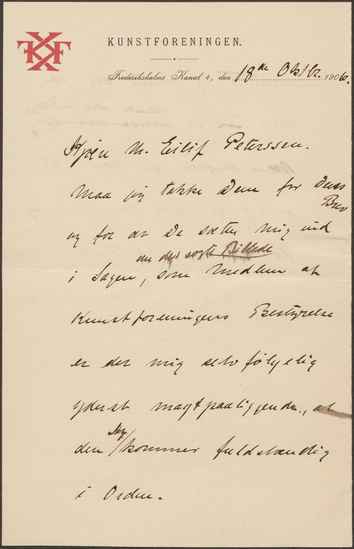 KUNSTFORENINGEN.
Frederiksholms Kanal 4, den 18de Oktbr. 1906.
Kjære M. Eilif Peterssen.
Maa jeg takke Dem for Deres
Brev
og for at De sætter mig ind
om det solgte Billede
i Sagen, som Medlem af
Kunstforeningens Bestyrelse
er det mig selvfølgelig
yderst magtpaaliggende, at
den kommer fuldstændig
i Orden.